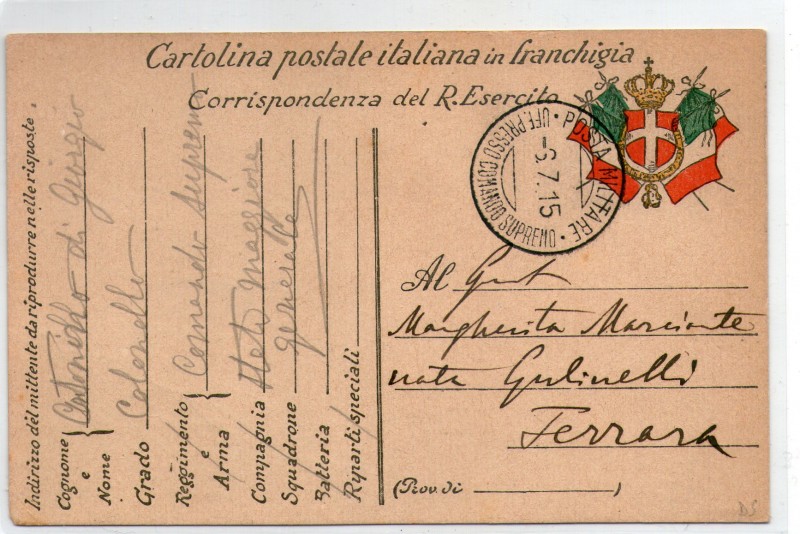 Cartolina postale italiana in franchigia
Corrispondenza del R. Esercito
POSTA MILITARE
UFF. PRESSO COMANDO SUPREMO
-6.7.15
Al
Margherita Marciante
nata Gulinelli
Ferrara
(Prov. di )
Indirizzo del mittente da riprodurre nelle risposte.
Cognome e Nome Antonello di Giorgio
Grado Colonello
Reggimento e Arma Comando Supremo
Compagnia Stato Maggiore
Squadrone generale
Batteria
Riparti speciali
DS